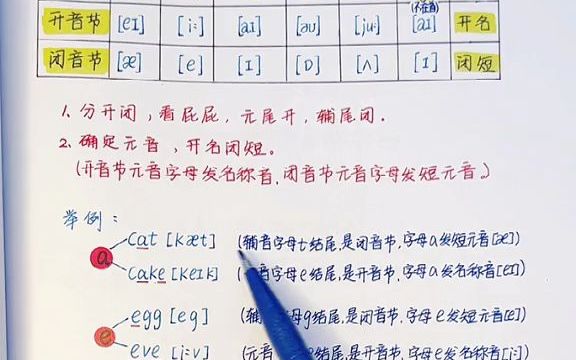 (不在首)
开音节 [eɪ] [i:] [aɪ] [əʊ] [ju:] [aɪ] 开名
闭音节 [æ] [e] [ɪ] [ɒ] [ʌ] [ɪ] 闭短
1. 分开闭,看屁屁,元尾开,辅尾闭.
2. 确定元音,开名闭短。
(开音节元音字母发名称音,闭音节元音字母发短元音。)
举例:
a
cat [kæt] (辅音字母t结尾,是闭音节,字母a发短元音[æ])
cake [keɪk] 音字母e结尾,是开音节,字母a发名称音[eɪ])
e
egg [eg] (辅 母g结尾,是闭音节,字母e发短元音[e])
eve [i:v] (元音 结尾,是开音节,字母e发名称音[i:])